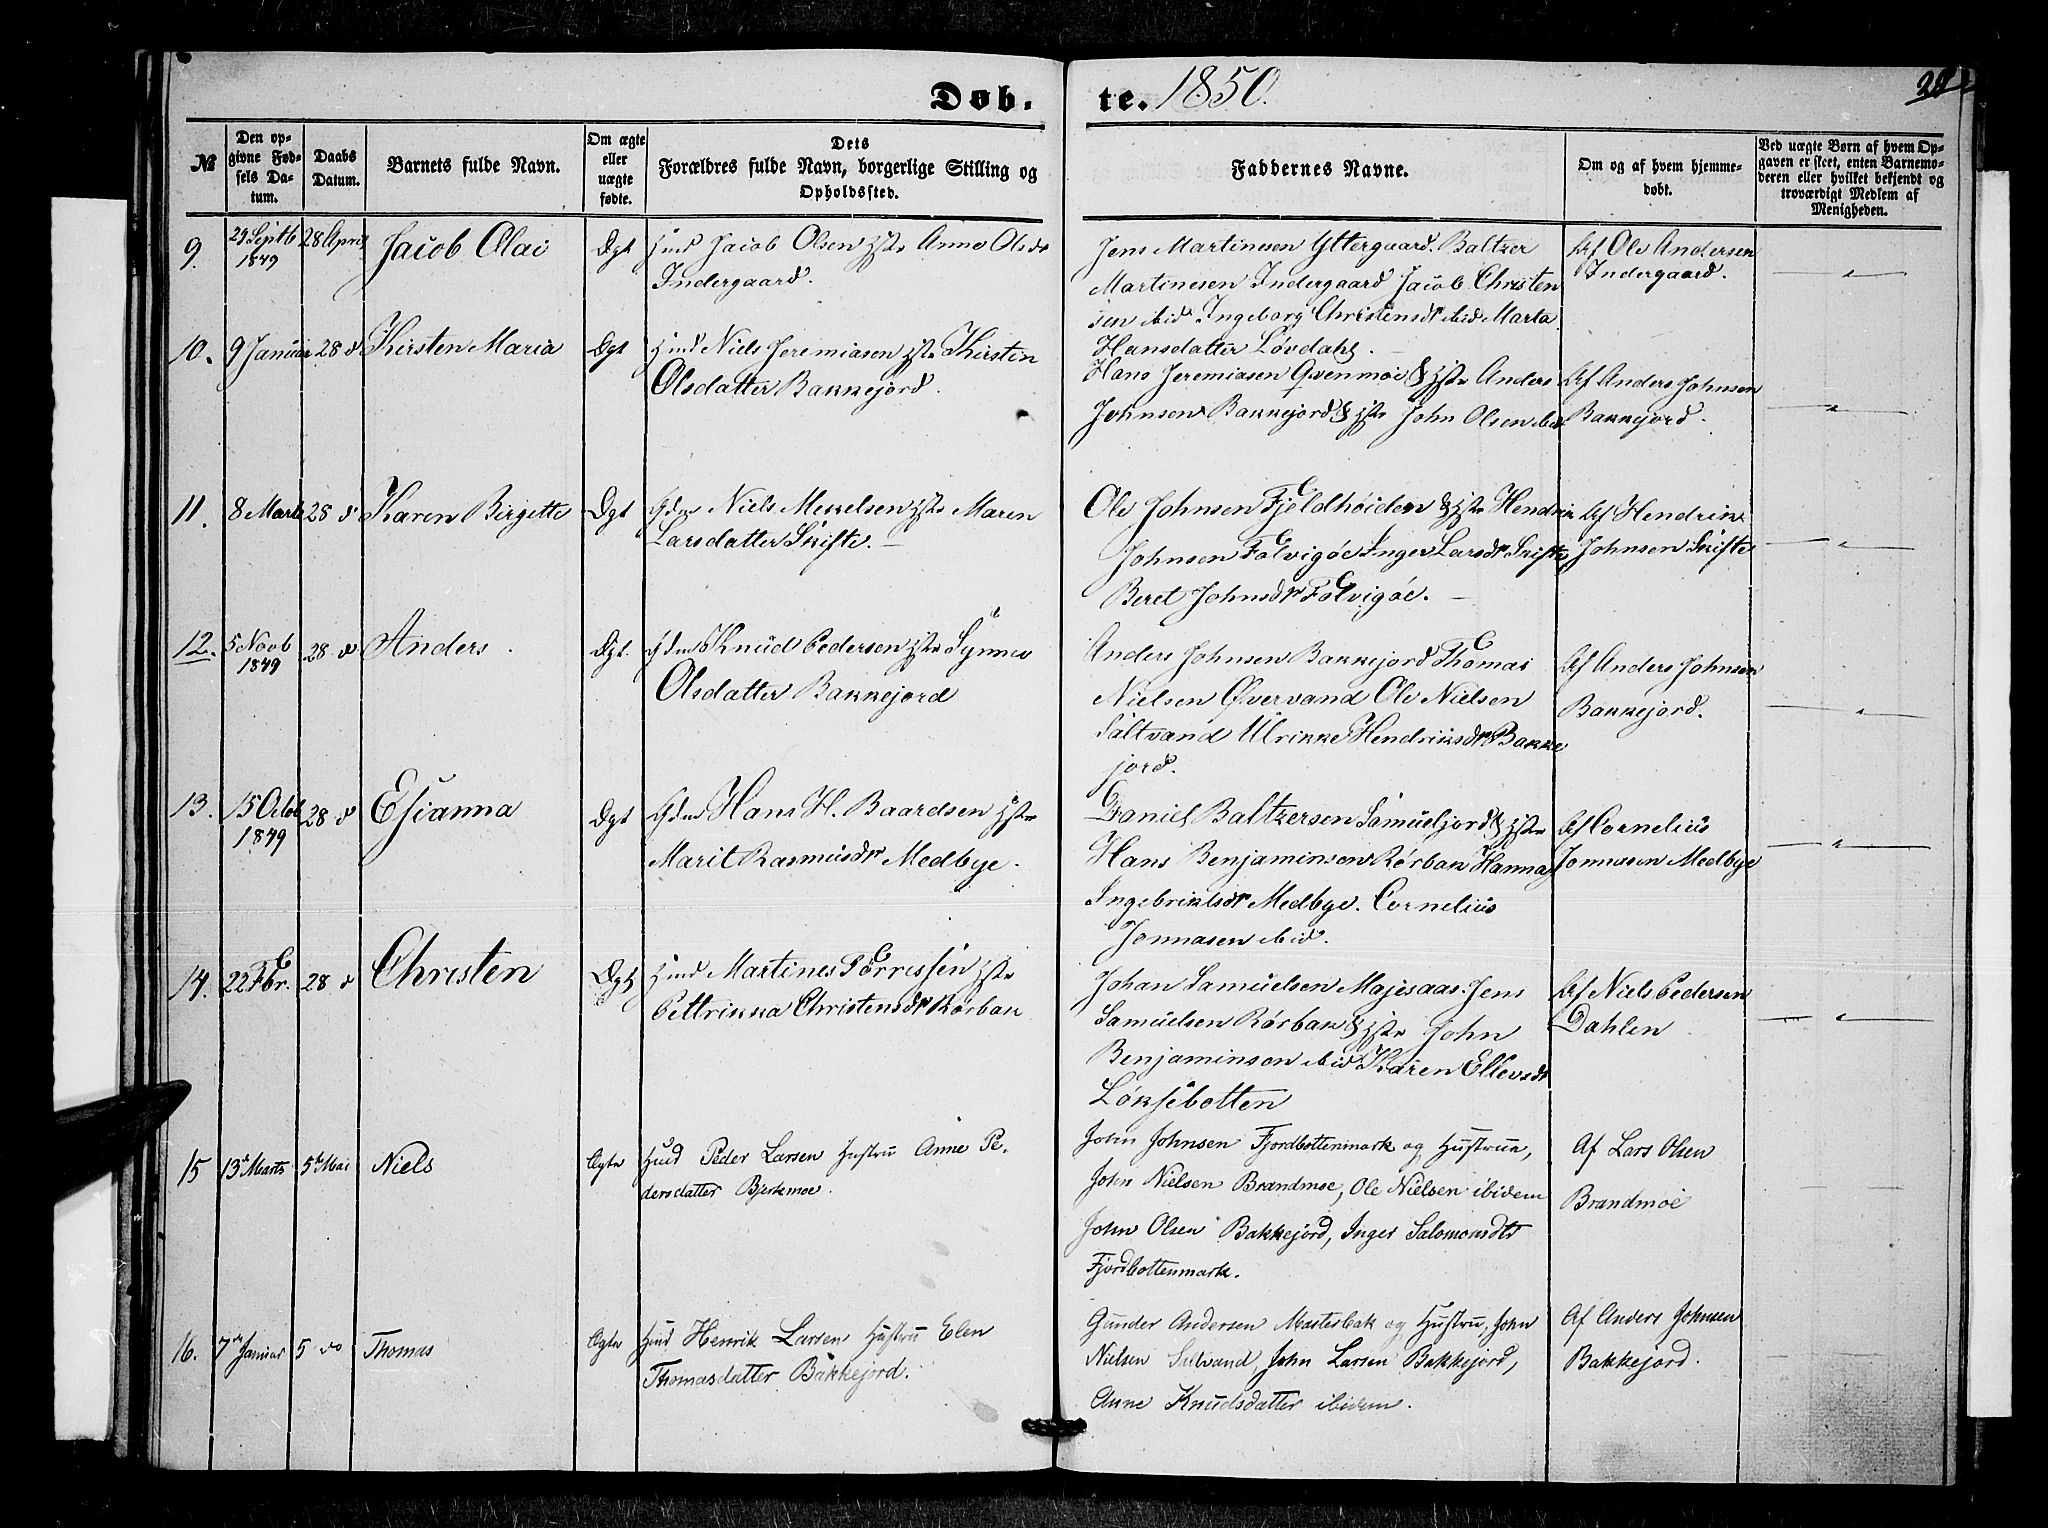 Døb- te. 1850.
№
Den op-
givne Fød-
sels Da-
tum.
Daabs
Datum.
Barnets fulde Navn.
Om ægte
eller
uægte
fødte.
Dets
Forældres fulde Navn, borgerlige Stilling og
Opholdssted.
Faddernes Navne.
Om og af hvem hjemme-
døbt.
Ved uægte Børn af hvem Op-
gaven er skeet, enten Barnemo-
deren eller hvilket bekjendt og
troværdigt Medlem af
Menigheden.
9. 29 Septb 1849 28 April Jacob Olai Ægt
Hmd Jacob Olsen Hstr Anne Olsdr
Indergaard.
Jens Martinesen Yttergaard. Baltzer
Martinesen Indergaard Jacob Christen
sen ibid. Ingeborg Christensdr ibid Marta
Hansdatter Løvdahl.
Af Ole Andersen
Indergaard.
10. 9 Januar 28 d Kirsten Maria Ægt
Hmd Niels Jeremiasen Hstr Kirsten
Olsdatter Bakkejord.
Hans Jeremiasen Qvenmoe & Hstr Anders
Johnsen Bakkejord & Hstr John Olsen ibid
Af Anders Johnsen
Bakkejord.
11. 8 Marts 28 d Karen Birgitte Ægt
Gdm Niels Mekkelsen Hstr Maren
Larsdatter Skifte.
Ole Johnsen Fjeldhøiden & Hstr Hendrik
Johnsen Folvigøe Inger Larsdr Skifte
Beret Johnsdr Folvigøe.
Af Hendrik
Johnsen Skifte
12. 5 Novb 1849 28 d Anders. Ægt.
Gdm Knud Pedersen Hstr Synnev
Olsdatter Bakkejord
Anders Johnsen Bakkejord Thomas
Nielsen Øvervand Ole Nielsen
Saltvand Ulrikke Hendriksdr Bakke
jord.
Af Anders Johnsen
Bakkejord.
13. 15 Octob 1849 28 d Esianna Ægt
Gdm Hans H. Baardsen Hstr
Marit Rasmusdr Medbye.
Daniel Baltzersen Samueljord & Hstr
Hans Benjaminsen Rørbak Hanna
Ingebriktsdr Medbye. Cornelius
Jonnasen ibid.
Af Cornelius
Jonnasen Medbye
14. 22 Fbr. 28 d Christen Ægt
Hmd Martines Torrissen Hstr
Pettrikka Christensdr Rørbak
Johan Samuelsen Majesaas. Jens
Samuelsen Rørbak & Hstr John
Benjaminsen ibid Karen Ellevsdr
Løksebotten
Af Niels Pedersen
Dahlen
15 13de Marts 5te Mai Niels Ægte
Hmd Peder Larsen Hustru Anne Pe-
dersdatter Bjerkmoe.
John Johnsen Fjordbottenmark og Hustrue,
John Nielsen Brandmoe, Ole Nielsen ibidem
John Olsen Bakkejord, Inger Salomonsdtr
Fjordbottenmark.
Af Lars Olsen
Brandmoe
16. 7de Januar 5 do Thomas Ægte
Hmd Henrik Larsen Hustru Elen
Thomasdatter Bakkejord.
Gunder Andersen Masterbak og Hustru, John
Nielsen Sætvand, John Larsen Bakkejord,
Anne Knudsdatter ibidem.
Af Anders Johnsen
Bakkejord.